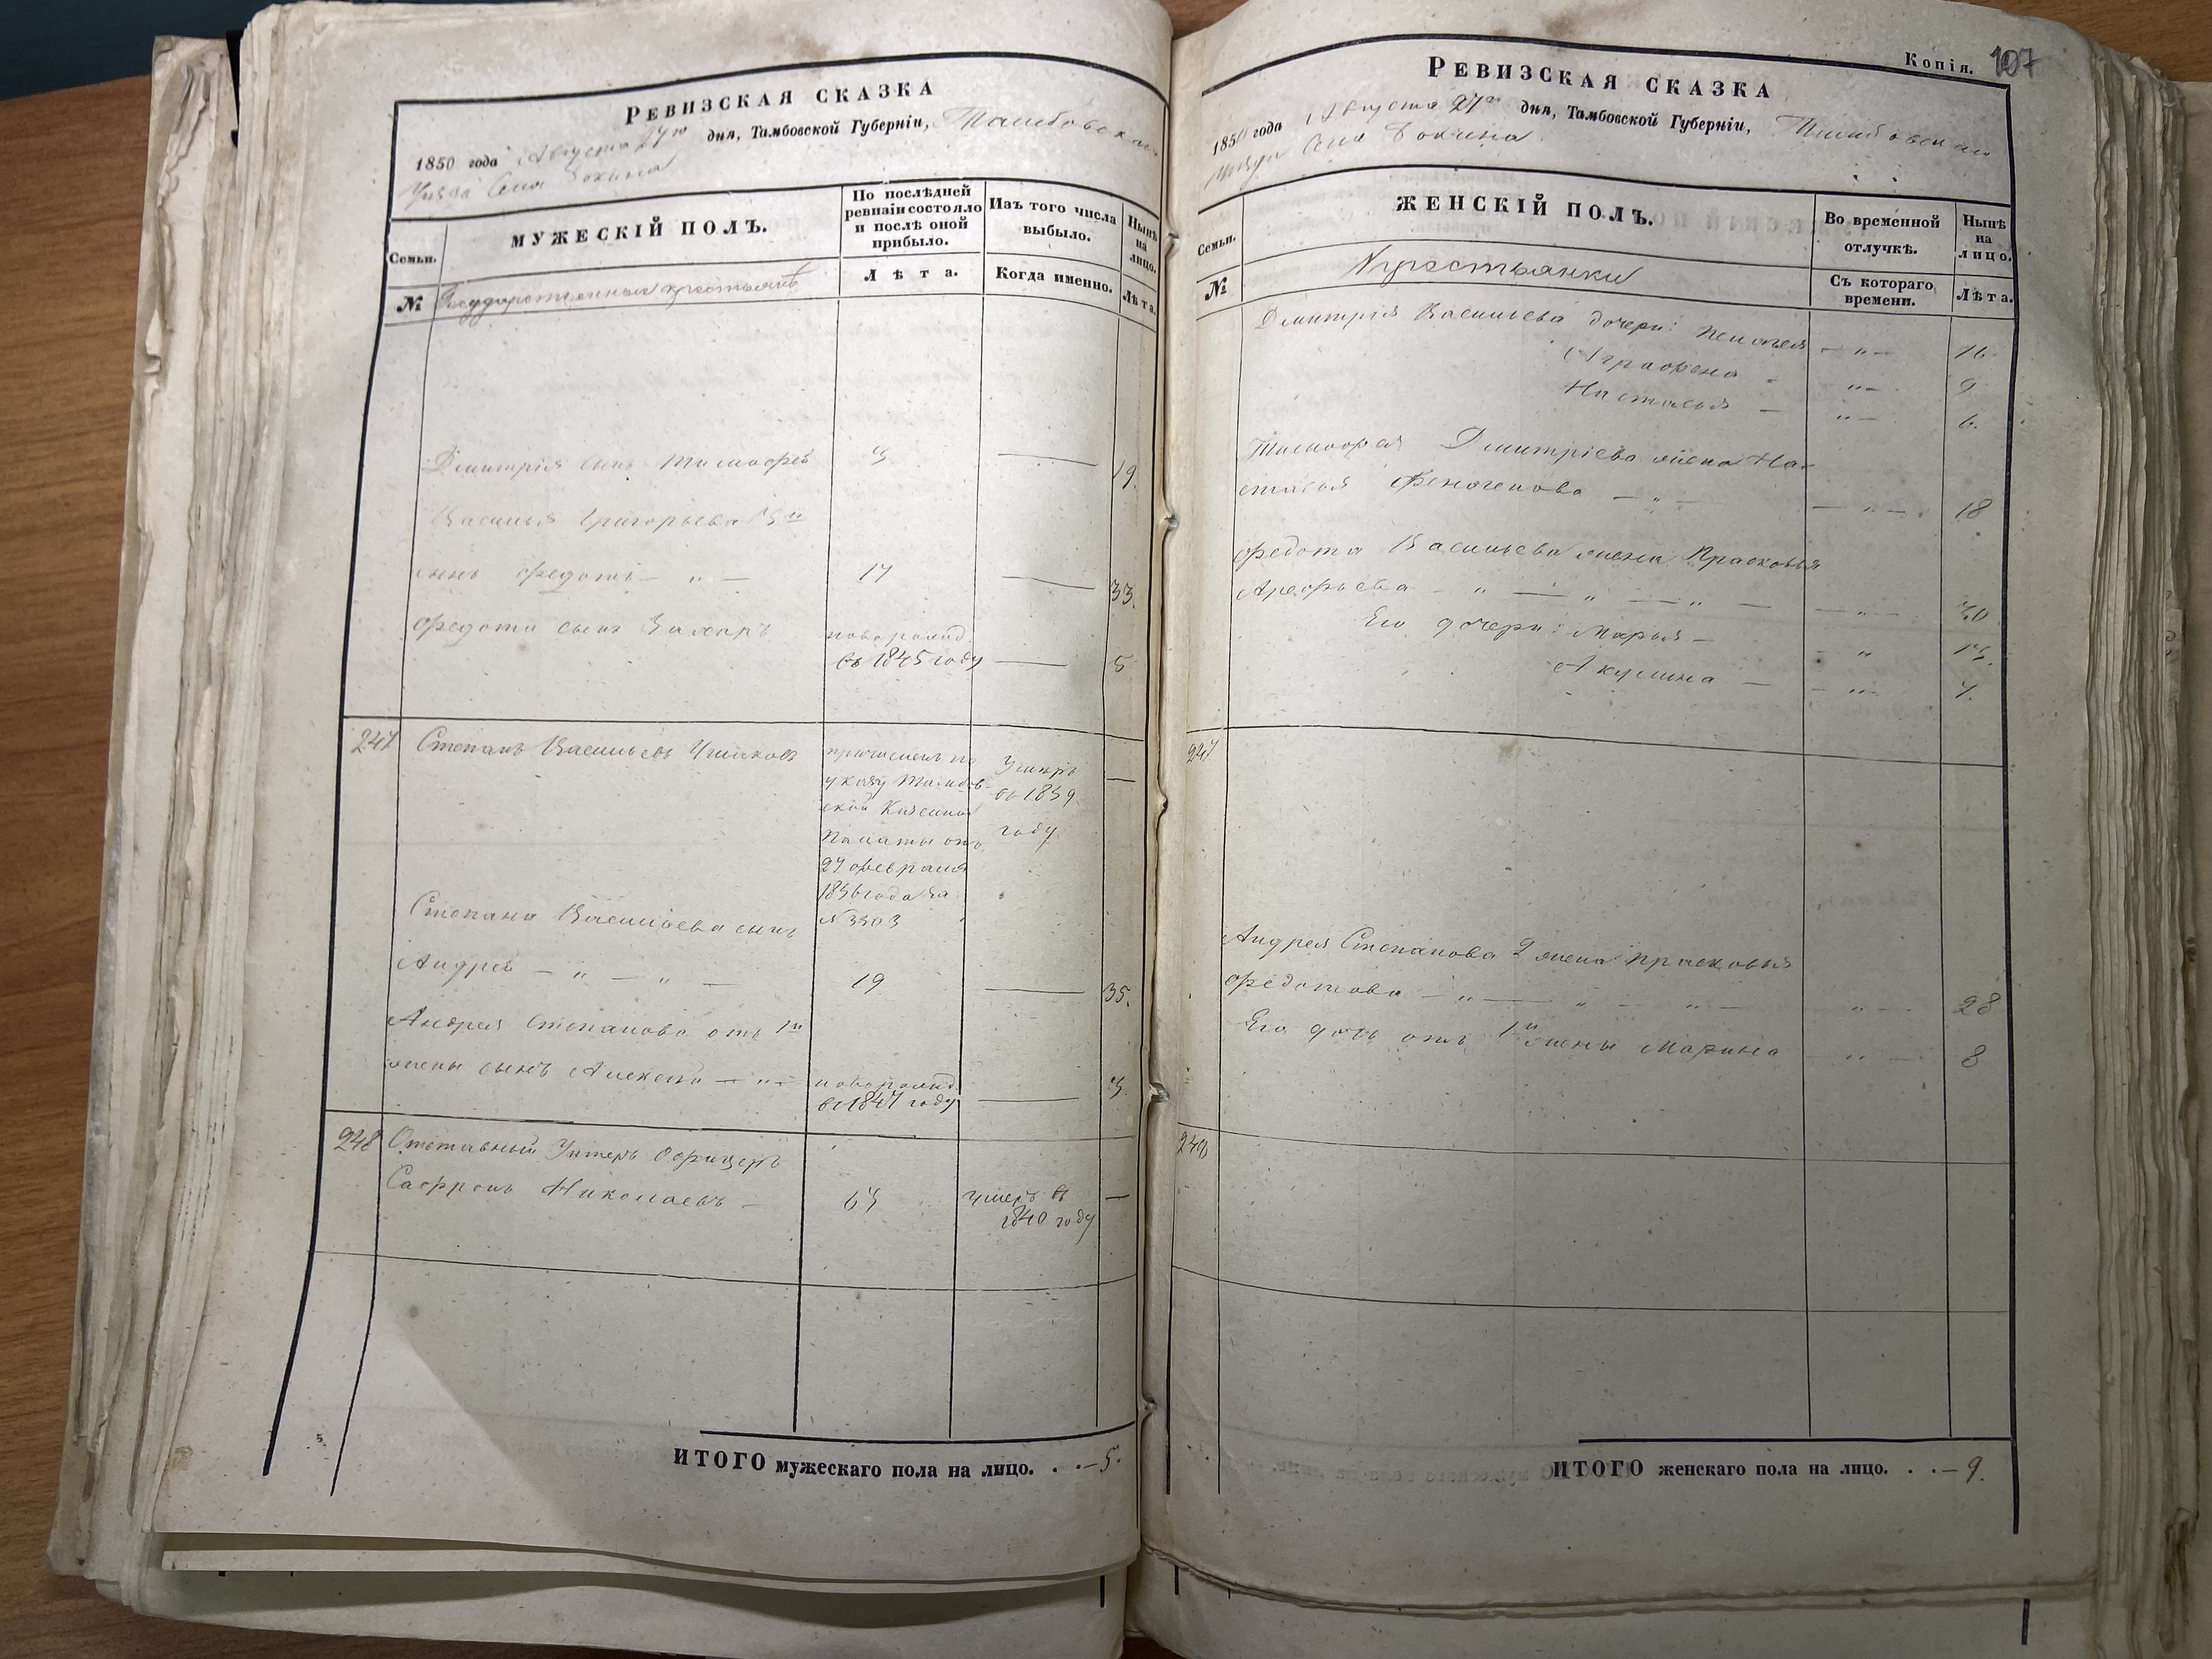 РЕВИЗСКАЯ СКАЗКА
1850 года Августа 27го дня, Тамбовской Губерніи, Тамбовскаго
Уѣзда Села
Семьи.
МУЖЕСКІЙ ПОЛЪ.
По послѣдней ревизіи состояло и послѣ оной прибыло.
Изъ того числа выбыло.
Нынѣ на лицо.
№
Государственныя крестьянѣ
Лѣта.
Когда именно.
Лѣта.
Дмитрія сынъ Тимофей 3 — 19.
Василья Григорьева 3й
сынъ Федотъ — „ — 17 — 33.
Федота сынъ Захаръ новорожд.
въ 1845 году — 5
247 Степанъ Васильевъ причисленъ по Умеръ —
указу Тамбов- въ 1839
ской Казенной
Палаты отъ году
27 февраля
1836 года за
Степана Васильева сынъ №3303
Андрей — „ — „ — 19 — 35.
Андрея Степанова отъ 1й
жены сынъ Алексѣй — „ — новорожд. 3
въ 1847 году —
248 Отставный Унтеръ Офицеръ
Сафронъ Николаевъ — 63 умеръ въ —
1840 году
ИТОГО мужескаго пола на лицо. . . — 5.
Копія. 107
РЕВИЗСКАЯ СКАЗКА
1850 года Августа 27го дня, Тамбовской Губерніи, Тамбовскаго
уѣзда Села
Семьи.
ЖЕНСКІЙ ПОЛЪ.
Во временной отлучкѣ.
Нынѣ на лицо.
№
Крестьянки
Съ котораго времени.
Лѣта.
Дмитрія Васильева дочери: Пелагея — „ — 16.
Аграфена — „ — 9
Наталья — „ — 6.
Тимофея Дмитріева жена На-
талья — „ — — „ — 18
Федота Васильева жена Прасковья
Арефьева — „ — „ — „ — — „ — 30
Его дочери: Марья — — „ 13.
Акулина — — „ — 7.
247
Андрея Степанова 2 жена Прасковья
Федотова — „ — „ — „ — „ — 28
Его дочь отъ 1й жены Марина „ — 8
248
ИТОГО женскаго пола на лицо. . . — 9.